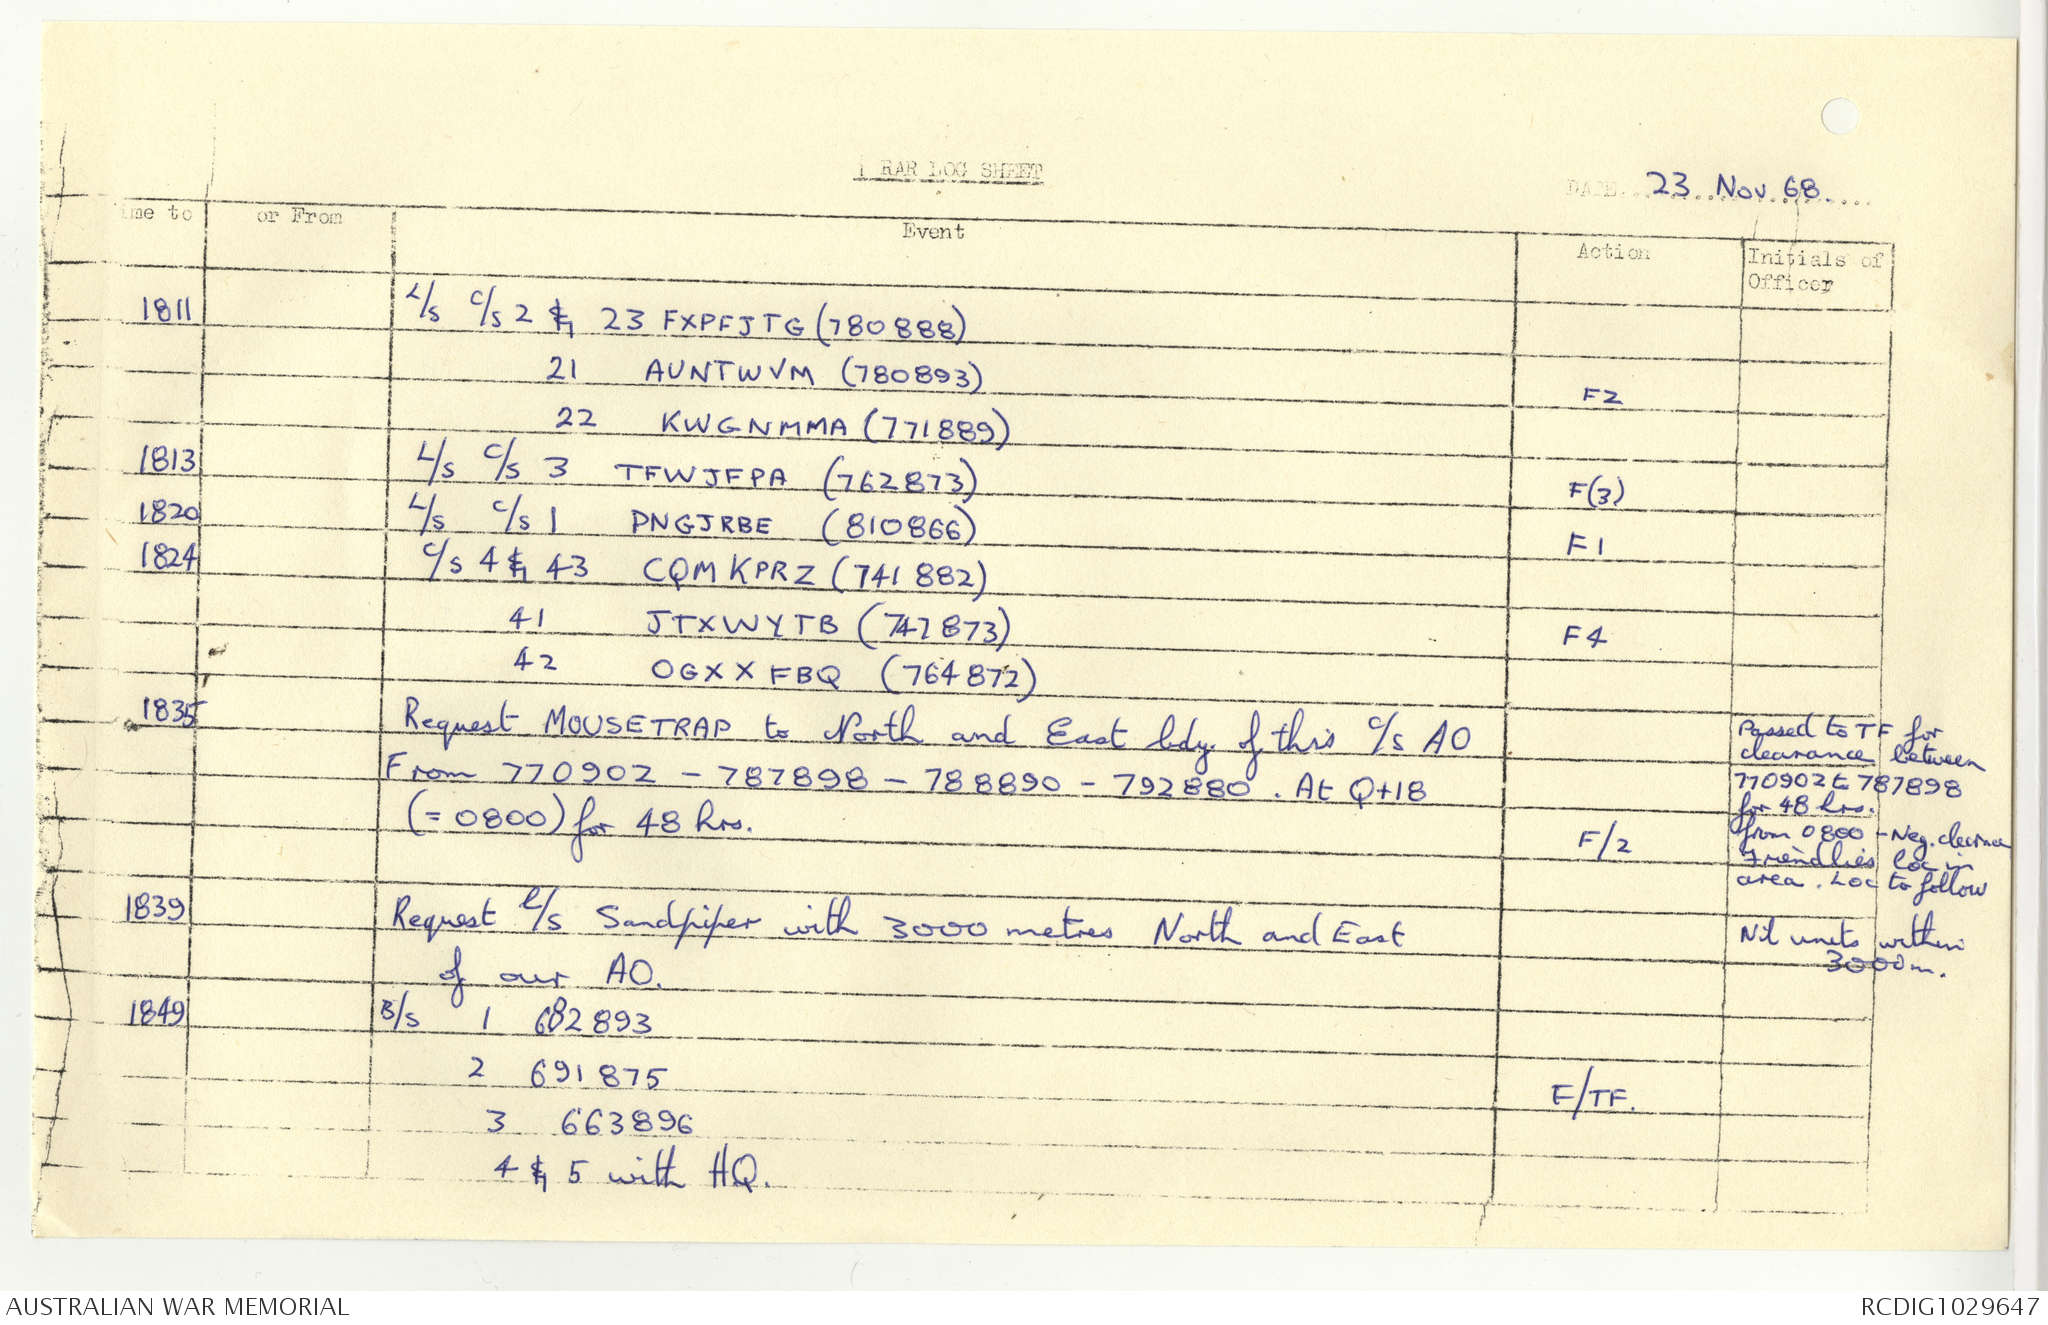 1 RAR LOG SHEET
DATE 23 Nov 68.
ime to or From Event Action Initials of
Officer
1811 L/S C/S 2 & 23 FXPFJTG (780888)
21 AUNTWVM (780893)
F2
22 KWGNMMA (771889)
1813 L/S C/S 3 TFWJFPA (762873) F(3)
1820 L/S C/S 1 PNGJRBE (810866) F1
1824 C/S 4 & 43 CQMKPRZ (741882)
41 JTXWYTB (747873) F4
42 OGXXFBQ (764872)
1835 Request MOUSETRAP to North and East bdy. of this C/S AO
From 770902 - 787898 - 788890 - 792880. At Q+18
(= 0800) for 48 hrs. F/2
Passed to TF for
clearance between
770902 to 787898
for 48 hrs.
from 0800 - Neg. clearance
Friendlies loc in
area. Loc to follow
1839 Request L/S Sandpiper with 3000 metres North and East
of our AO.
Nil units within
3000m.
1849 B/S 1 682893
2 691875
F/TF.
3 663896
4 & 5 with HQ.
AUSTRALIAN WAR MEMORIAL RCDIG1029647